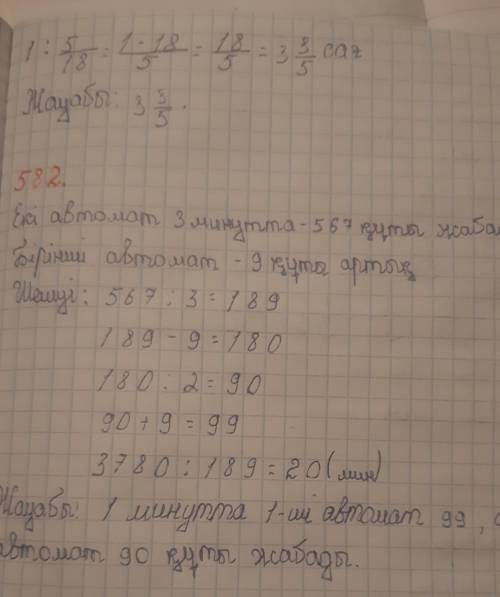 1 : 5/18 = 1 · 18/5 = 18/5 = 3 3/5 сағ
Жауабы: 3 3/5.
582.
Екі автомат 3 минутта - 567 құты жаба
Бірінші автомат - 9 құты артық
Шешуі: 567 : 3 = 189
189 - 9 = 180
180 : 2 = 90
90 + 9 = 99
3780 : 189 = 20 (мин)
Жауабы: 1 минутта 1-ші автомат 99,
автомат 90 құты жабады.